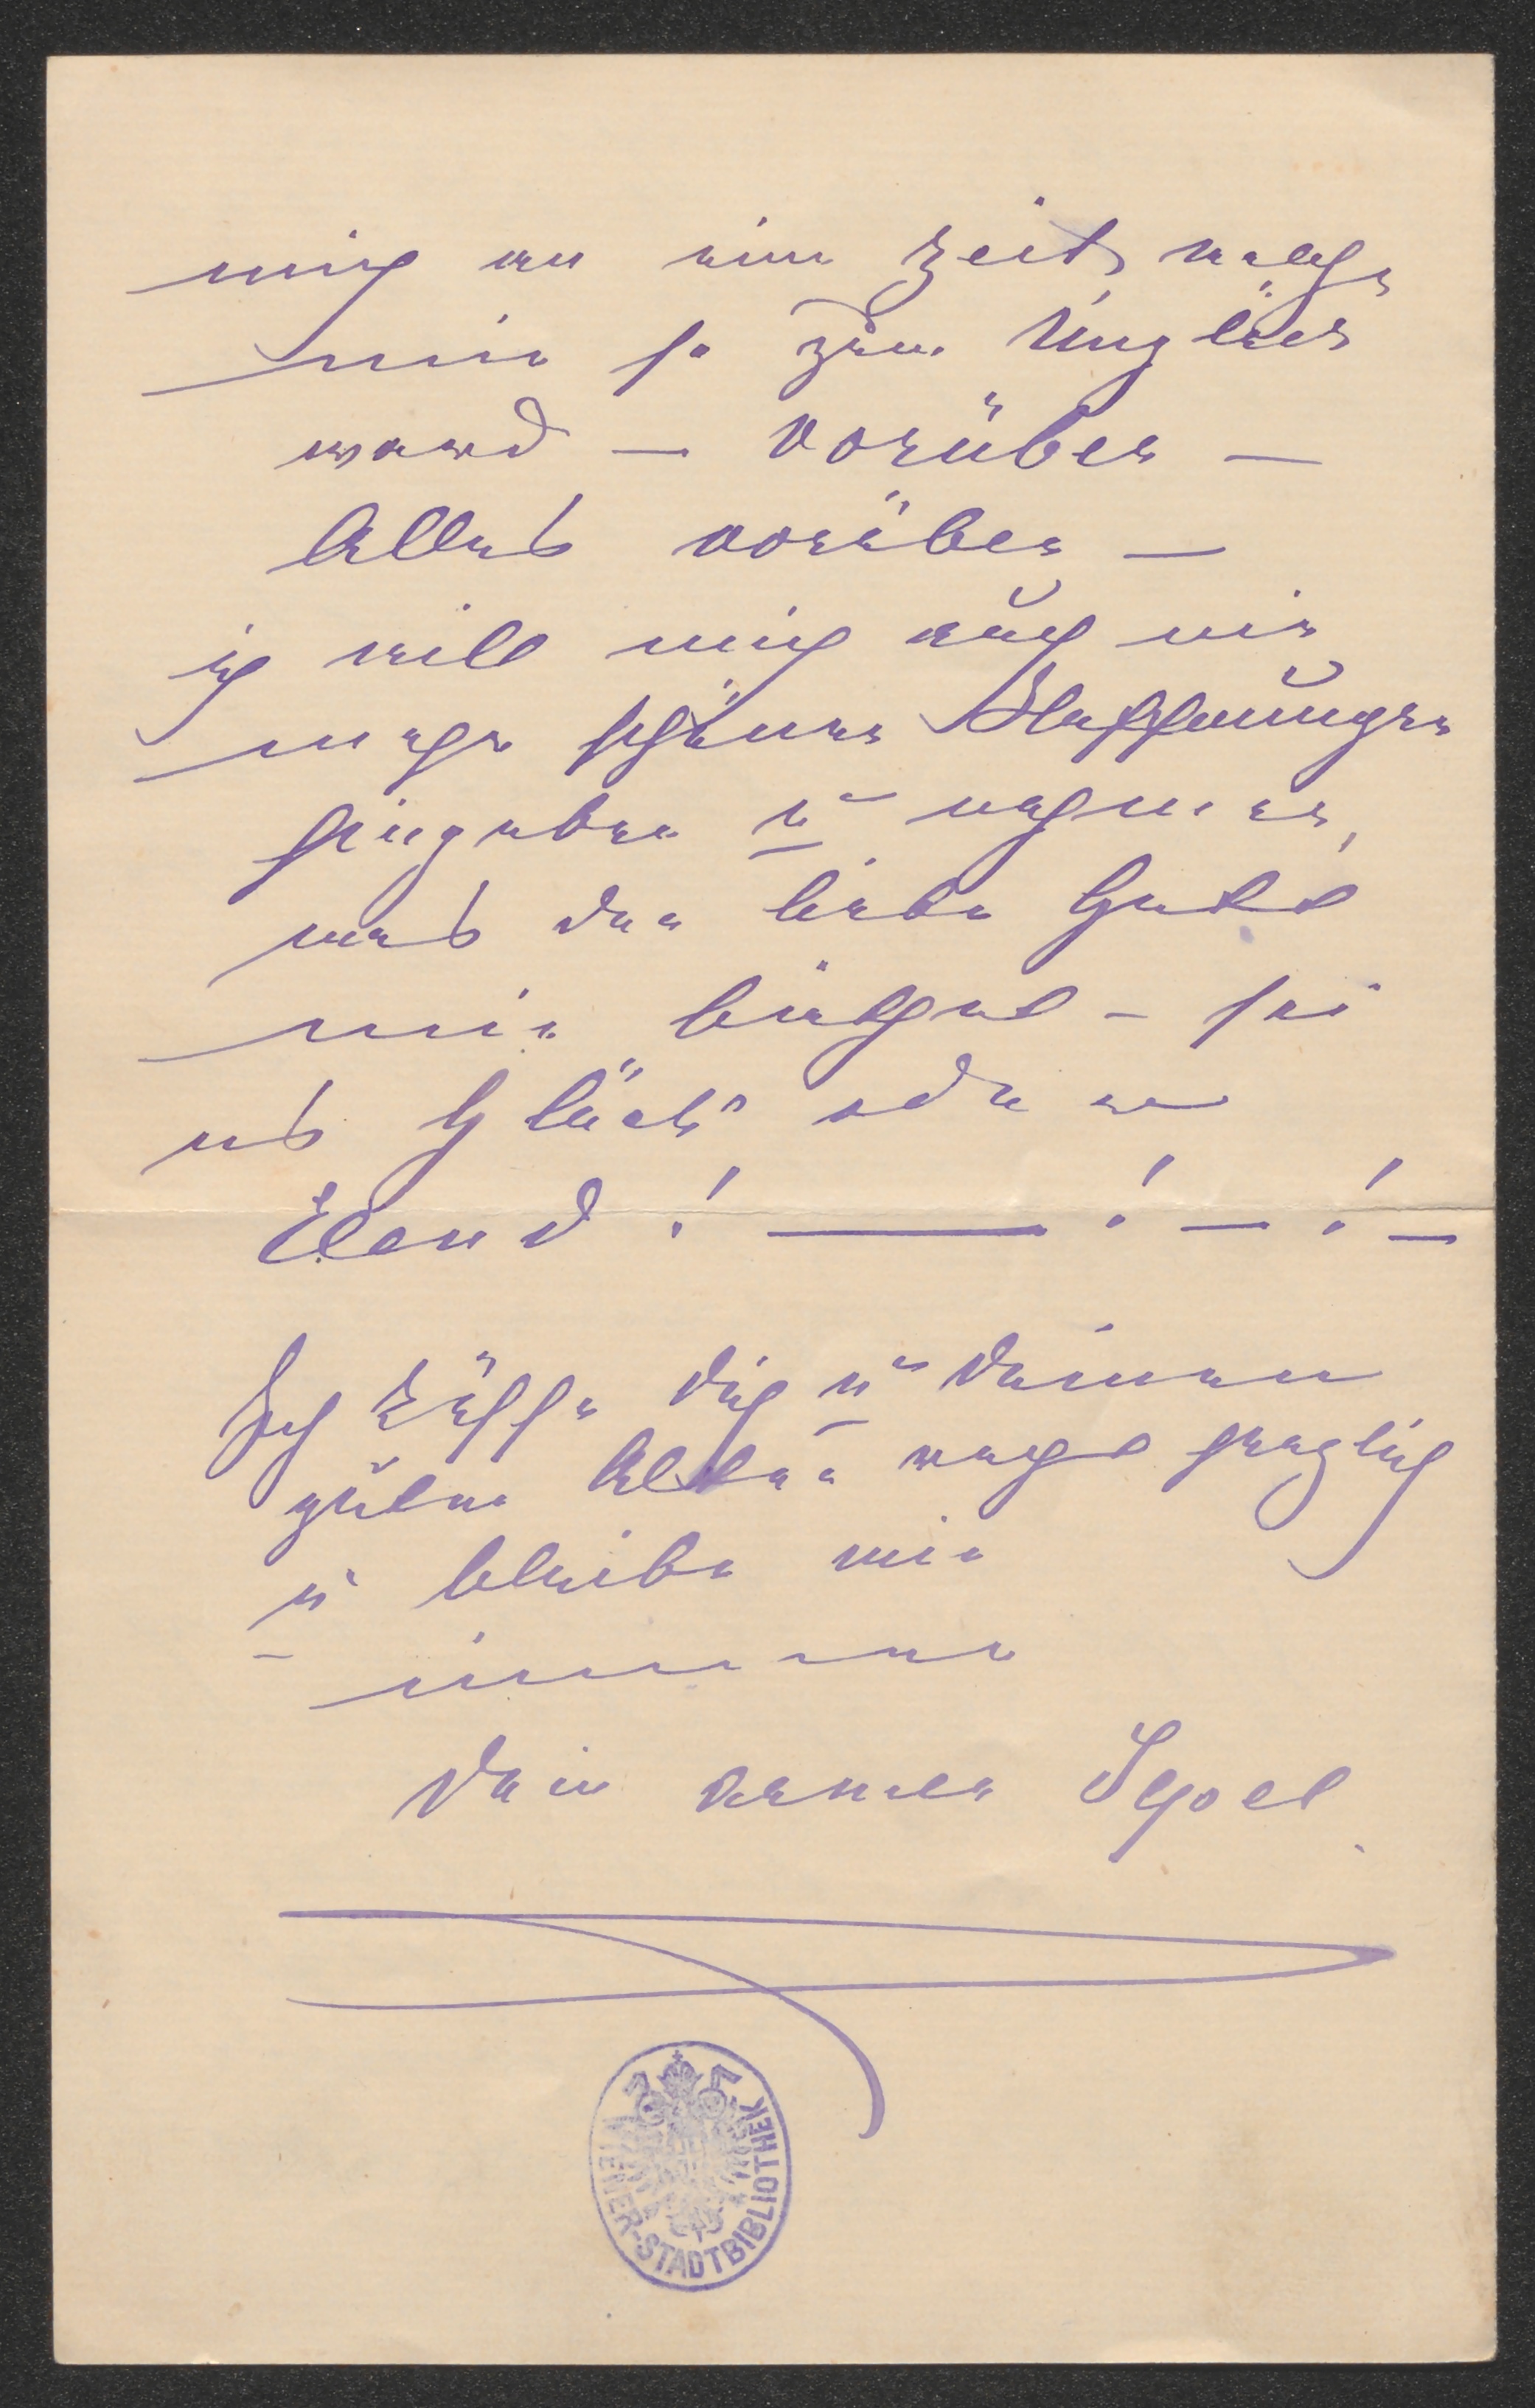 mich an eine Zeit, welche
mir so zum Unglück
ward – vorüber –
Alles vorüber –
ich will mich auch nie
mehr schönen Hoffnungen
hingeben u nehmen,
was der liebe Gott
mir biethet – sei
es Glück oder
Elend ! — ! – ! –
Ich küsse dich u deinen
guten Alten recht herzlich
u bleibe wie
immer
dein armer
WIENER-STADTBIBLIOTHEK